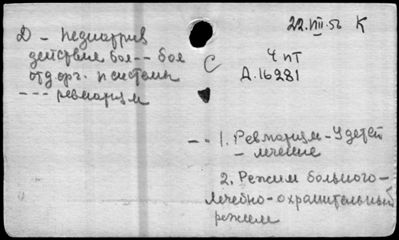 22.VIII.56 К
Д - педиатрив
действие бол-- бол
отд орг. и системы
--- ревматизм
С
4 пт
Д.16281
-- 1. Ревматизм - У детей
- лечение
2. Режим больного -
лечебно-охранительный
режим